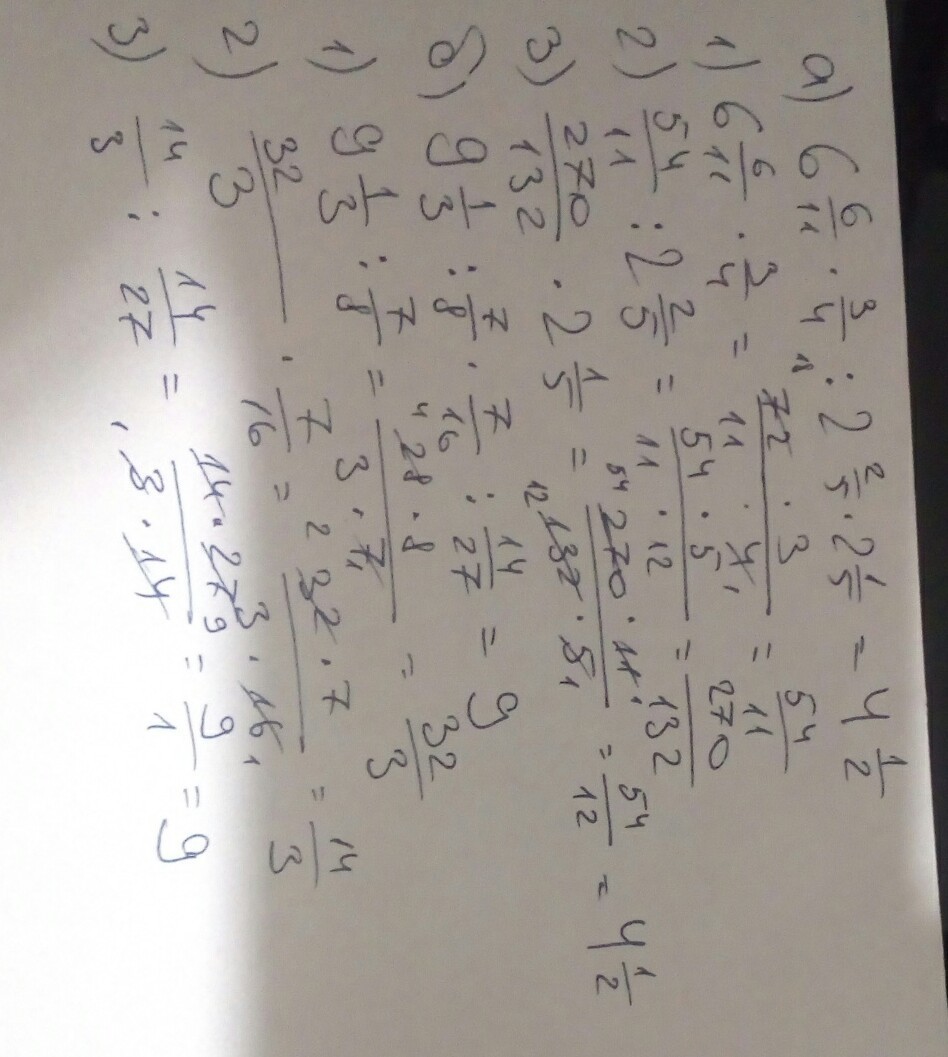 а) 6 6/11 · 3/4 : 2 2/5 · 2 1/5 = 4 1/2
1) 6 6/11 · 3/4 = 72 · 3 / 11 · 4 1 = 54/11
2) 54/11 : 2 2/5 = 54 · 5 / 11 · 12 = 270/132
3) 270/132 · 2 1/5 = 54 270 · 11 1 / 12 132 · 5 1 = 54/12 = 4 1/2
б) 9 1/3 : 7/8 · 7/16 : 14/27 = 9
1) 9 1/3 : 7/8 = 4 28 · 8 / 3 · 7 1 = 32/3
2) 32/3 · 7/16 = 2 32 · 7 / 3 · 16 1 = 14/3
3) 14/3 : 14/27 = 14 · 27 9 / 1 3 · 14 = 9/1 = 9